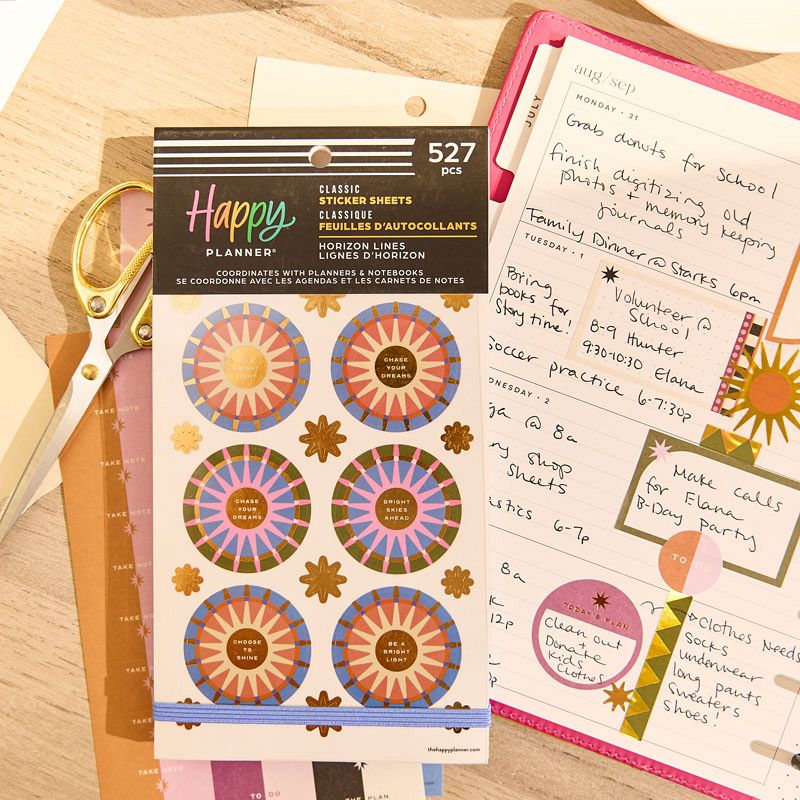 527
pcs
Happy
PLANNER®
CLASSIC
STICKER SHEETS
CLASSIQUE
FEUILLES D'AUTOCOLLANTS
HORIZON LINES
LIGNES D'HORIZON
COORDINATES WITH PLANNERS & NOTEBOOKS
SE COORDONNE AVEC LES AGENDAS ET LES CARNETS DE NOTES
BE A
BRIGHT
LIGHT
CHASE
YOUR
DREAMS
CHASE
YOUR
DREAMS
BRIGHT
SKIES
AHEAD
CHOOSE
TO
SHINE
BE A
BRIGHT
LIGHT
thehappyplanner.com
TAKE NOTE
TAKE NOTE
TAKE NOTE
TAKE NOTE
TAKE NOTE
TAKE NOTE
TAKE NOTE
TAKE NOTE
TO DO
THE PLAN
JULY
aug/sep
MONDAY · 31
Grab donuts for School
finish digitizing old
photos + memory keeping
journals
Family Dinner @ Starks 6pm
TUESDAY · 1
Bring
books for
Story time!
Volunteer @
School
8-9 Hunter
9:30-10:30 Elana
Soccer practice 6-7:30p
DNESDAY · 2
ga @ 8a
ny shop
Sheets
astics 6-7p
Make calls
for Elana
B-Day party
TO DO
8a
12p
TODAY'S PLAN
Clean out
+
Donate
kids
Clothes
Clothes Needs
socks
underwear
long pants
sweaters
shoes!